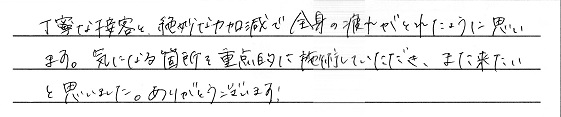 丁寧な接客と、絶妙な力加減で全身の疲れがとれたように思い
ます。気になる箇所を重点的に施術していただき、また来たい
と思いました。ありがとうございます!